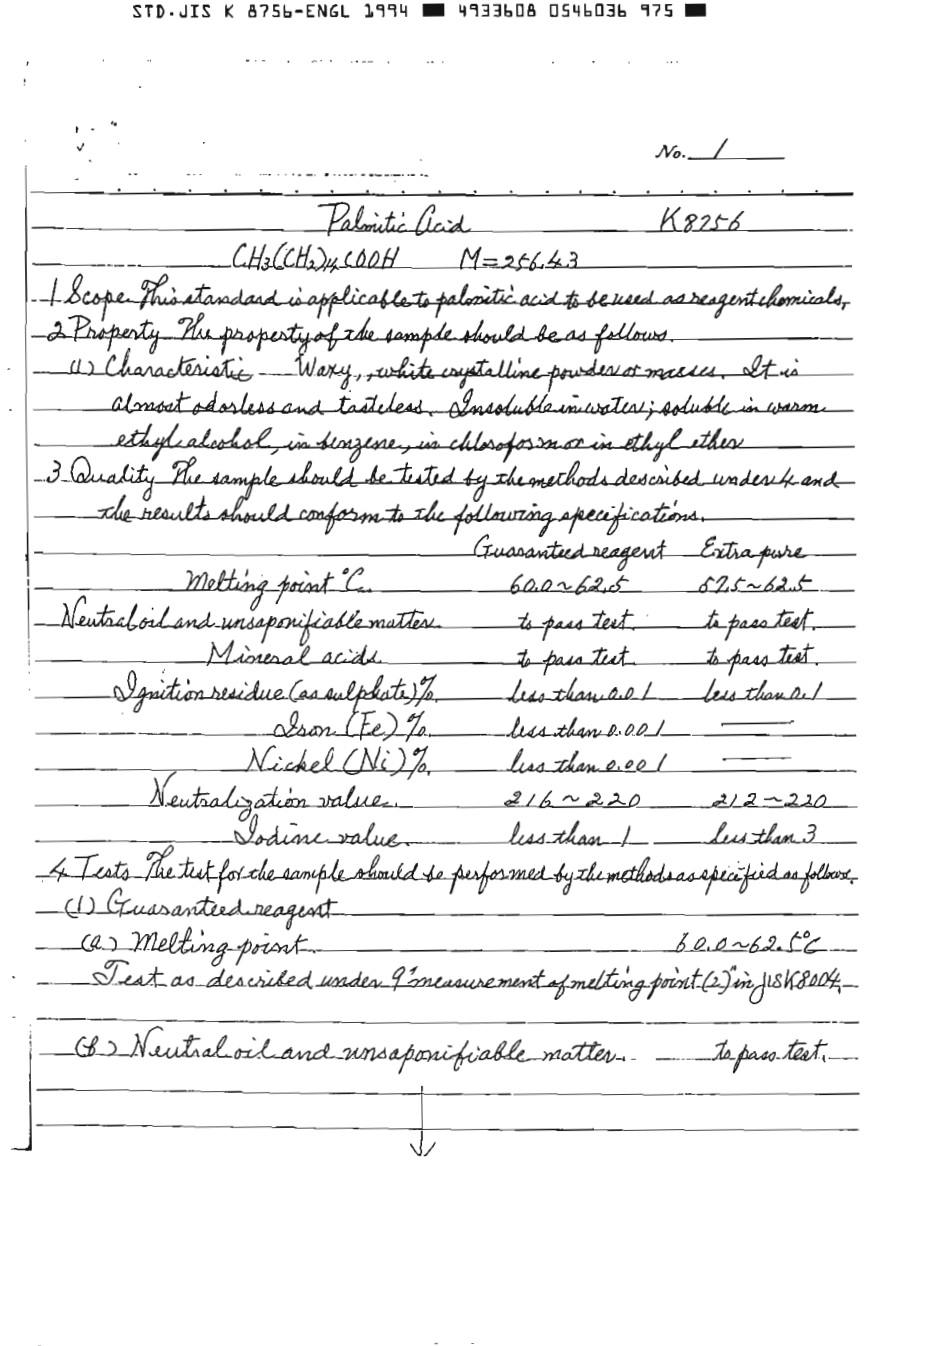 STD.JIS K 8756-ENGL 1994 ■ 4933608 0546036 975 ■
No. 1
Palmitic Acid K8756
CH3(CH2)14COOH M=256.43
1 Scope This standard is applicable to palmitic acid to be used as reagent chemicals,
2 Property The property of the sample should be as follows.
(1) Characteristic Waxy, white crystalline powder or masses. It is
almost odorless and tasteless. Insoluble in water; soluble in warm
ethyl alcohol, in benzene, in chloroform or in ethyl ether
3 Quality The sample should be tested by the methods described under 4 and
the results should conform to the following specifications.
Guaranteed reagent Extra pure
Melting point °C. 60.0~62.5 57.5~62.5
Neutral oil and unsaponifiable matter. to pass test. to pass test.
Mineral acids to pass test to pass test.
Ignition residue (as sulphate)%. less than 0.01 less than 0.1
Iron (Fe)%. less than 0.001 —
Nickel (Ni)%. less than 0.001 —
Neutralization value. 216~220 212~220
Iodine value. less than 1 less than 3
4 Tests The test for the sample should be performed by the methods as specified as follows.
(1) Guaranteed reagent
(a) Melting point. 60.0~62.5°C
Test as described under 9 "measurement of melting point (2)" in JIS K8004.
(b) Neutral oil and unsaponifiable matter. to pass test.